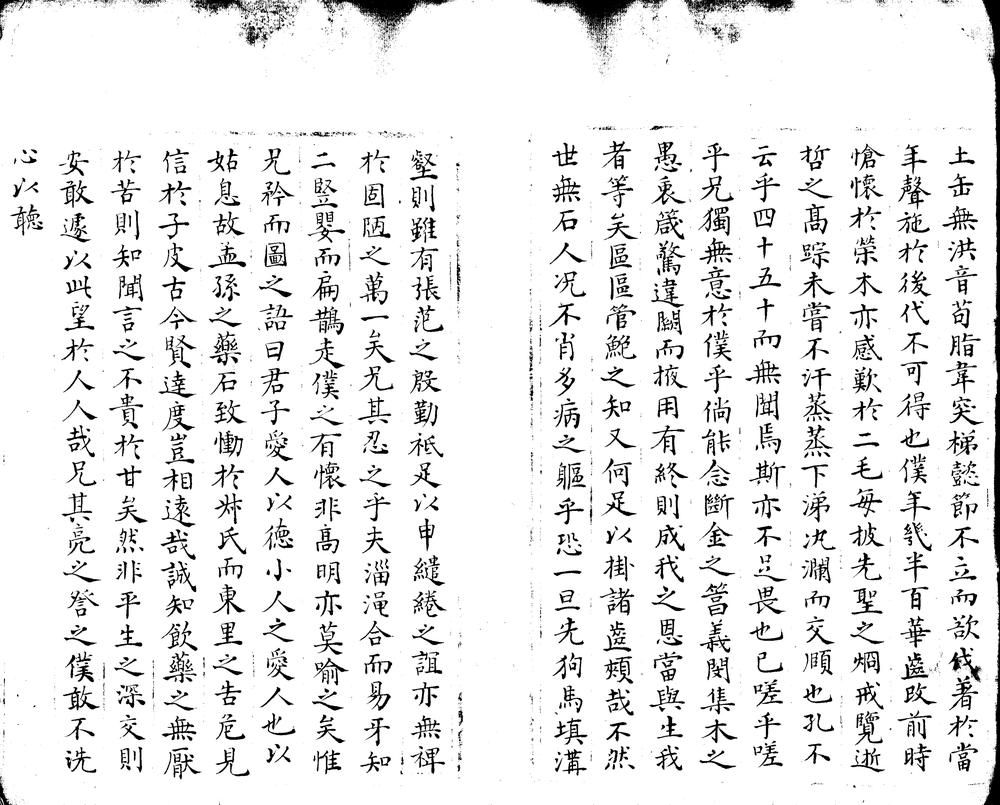 土缶無洪音苟脂韋突梯懿節不立而欲伐著於當
年聲施於後代不可得也僕年幾半百華齒改前時
愴懷於榮木亦感歎於二毛每披先聖之炯戒覽逝
哲之高踪未嘗不汗蒸蒸下涕汍瀾而交頤也孔不
云乎四十五十而無聞焉斯亦不足畏也已嗟乎嗟
乎兄獨無意於僕乎倘能念斷金之簪義閔集木之
愚衷箴驚違闕而掖用有終則成我之恩當與生我
者等矣區區管鮑之知又何足以掛諸齒頰哉不然
世無石人况不肖多病之軀乎恐一旦先狗馬填溝
壑則雖有張范之殷勤袛足以申繾綣之誼亦無裨
於固陋之萬一矣兄其忍之乎夫淄澠合而易牙知
二竪嬰而扁鵲走僕之有懷非高明亦莫喻之矣惟
兄矜而圖之語曰君子愛人以德小人之愛人也以
姑息故孟孫之藥石致慟於叔氏而東里之告危見
信於子皮古今賢達度豈相遠哉誠知飲藥之無厭
於苦則知聞言之不貴於甘矣然非平生之深交則
安敢遽以此望於人人哉兄其亮之詧之僕敢不洗
心以聽